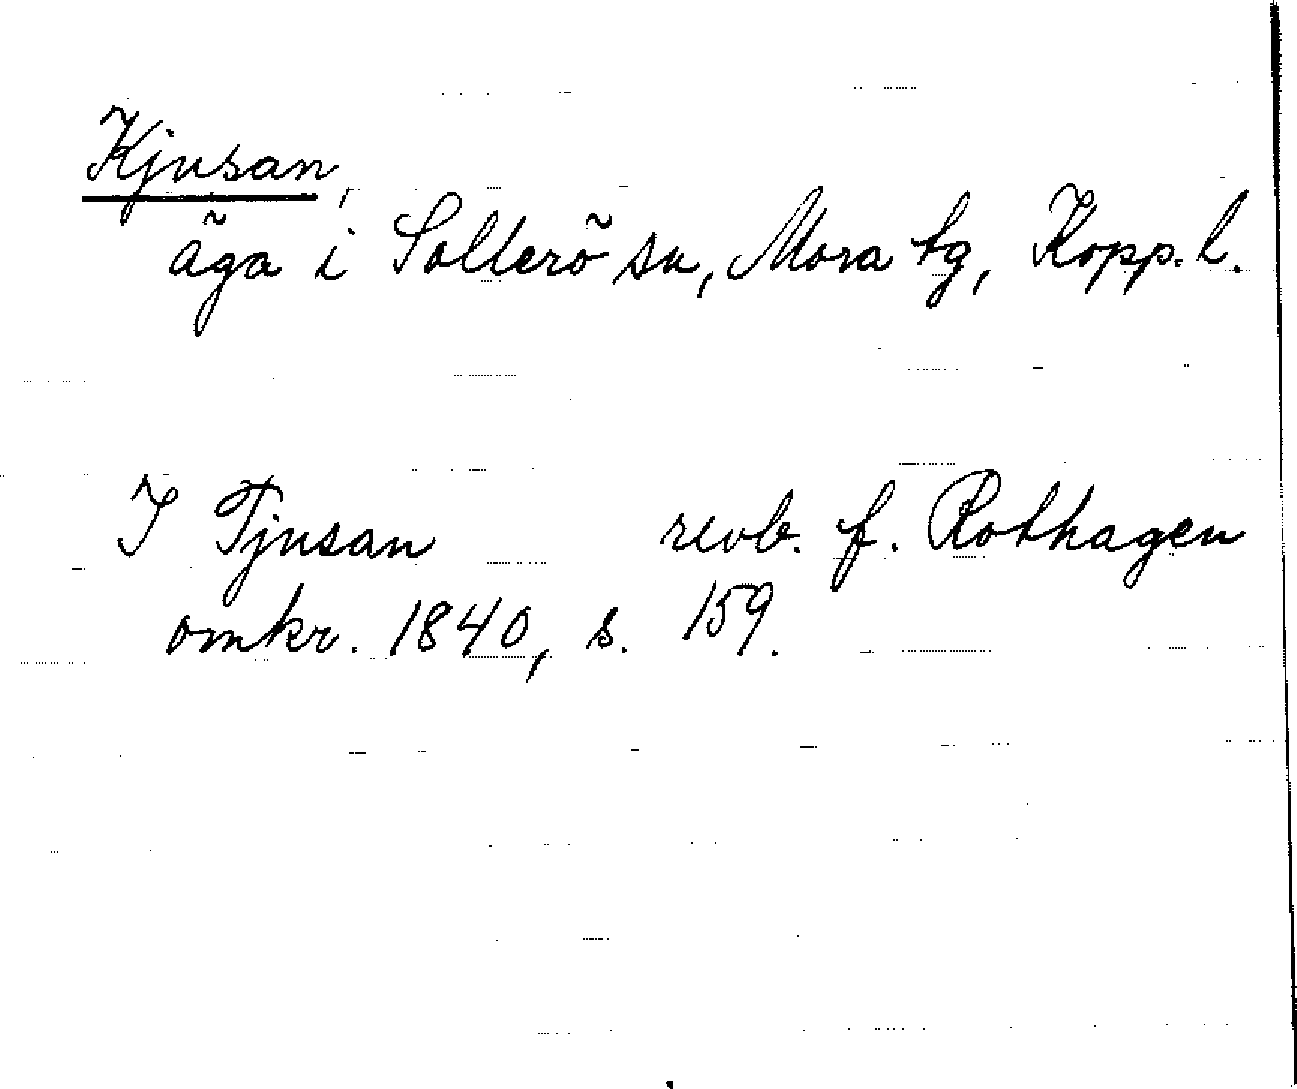 Kjusan,
äga i Sollerö sn, Mora tg, Kopp. l.
I Tjusan revb. f. Rothagen
omkr. 1840, s. 159.